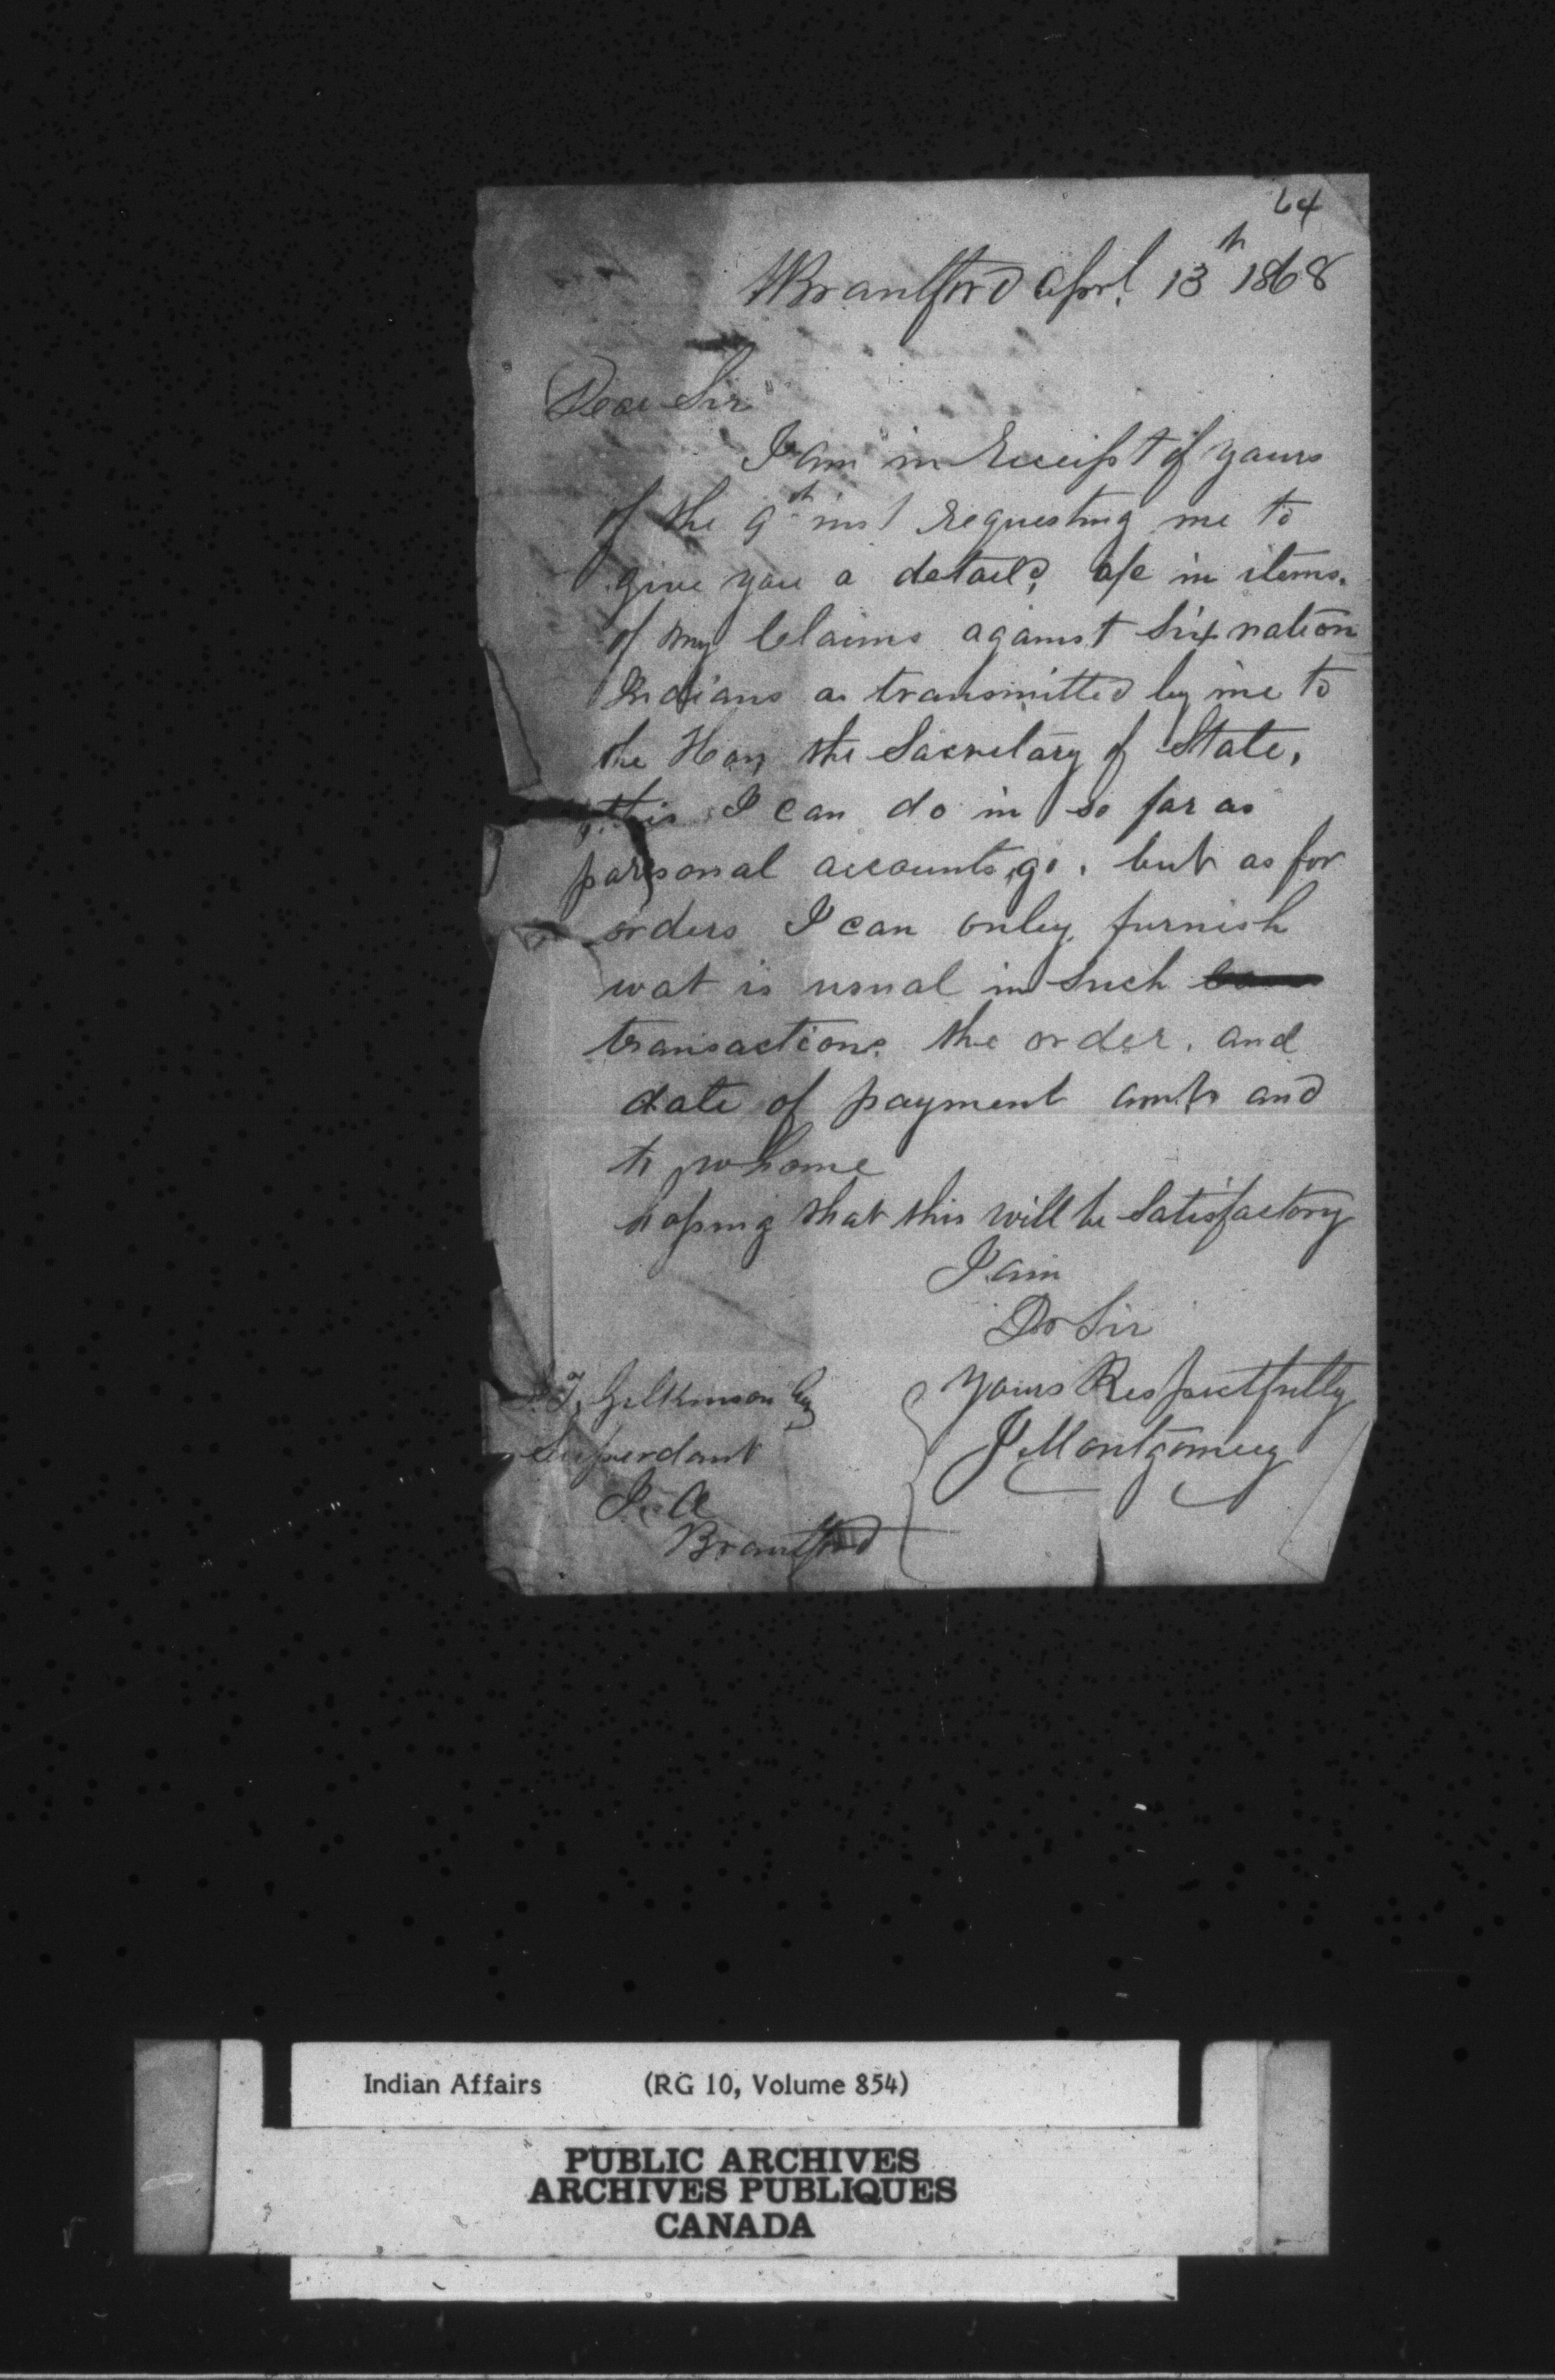 64
Brantford Aprl 13th 1868
Dear Sir
I am in Receipt of yours
of the 9th inst requesting me to
give you a detaild a/c in items
of my Claims against Six nation
Indians as transmitted by me to
the Hon the Sacretary of State,
this I can do in so far as
parsonal accounts go, but as for
orders I can onley furnish
wat is usual in Such
transactions the order, and
date of payment amts and
to whome
hoping that this will be Satisfactory
I am
Dr Sir
Yours Respectfully
J Montgomery
J. T. Gilkinson Esq
Superdant
I. A
Brantford
Indian Affairs (RG 10, Volume 854)
PUBLIC ARCHIVES
ARCHIVES PUBLIQUES
CANADA